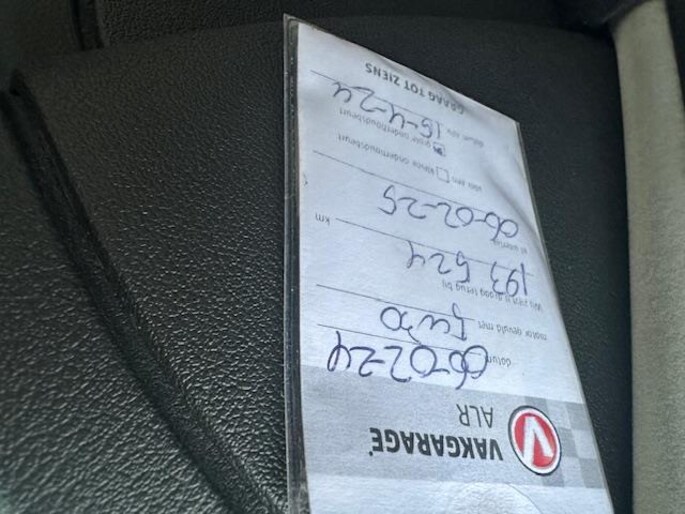 VAKGARAGE
ALR
datum 06-02-24
motor gevuld met 5w30
Wij zien u graag terug bij
193 524 km
of uiterlijk
06-02-25
voor een kleine onderhoudsbeurt
grote onderhoudsbeurt
datum APK 15-4-24
GRAAG TOT ZIENS